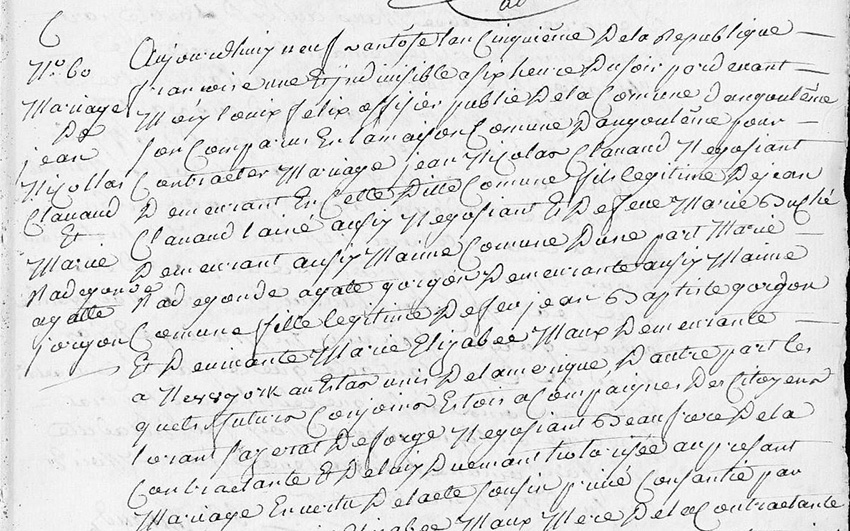 No. 60
Mariage
De
jean
Nicollas
Clavaud
Et
Marie
Radegonde
agatte
gorgon
Aujourdhuy neuf vantose lan Cinquième De la Republique
francoise une Et indivisible a six heure Du soir par devant
Moy louix felix offisier public De la Comune dangoulême
son Comparus En la maison Comune Dangoulême pour
Contracter Mariage jean Nicolas Clavaud Negosiant
Demeurant En Cette Ditte Comune fils legitime De jean
Clavaud lainé aussy Negosiant Et De feue Marie Duché
Demeurant aussy Maime Comune Dune part Marie
Radegonde agate gorgon Demeurante aussy Maime
Comune fille legitime De feu jean Baptiste gorgon
Et De vivante Marie Elizabee Maux Demeurante
a Newyork au Estas unis De lamerique, D'autre part les
quels futurs Conjoins Estois acompaignes Des Citoyens
lorant fayerat Deforge Negosiant Beaufrere De la
Contractante Et De luix Duemant hotorisée au presant
Mariage En vertu De lacte sousin privé Consantie par
Elizabee Maux Mere De la Contractante